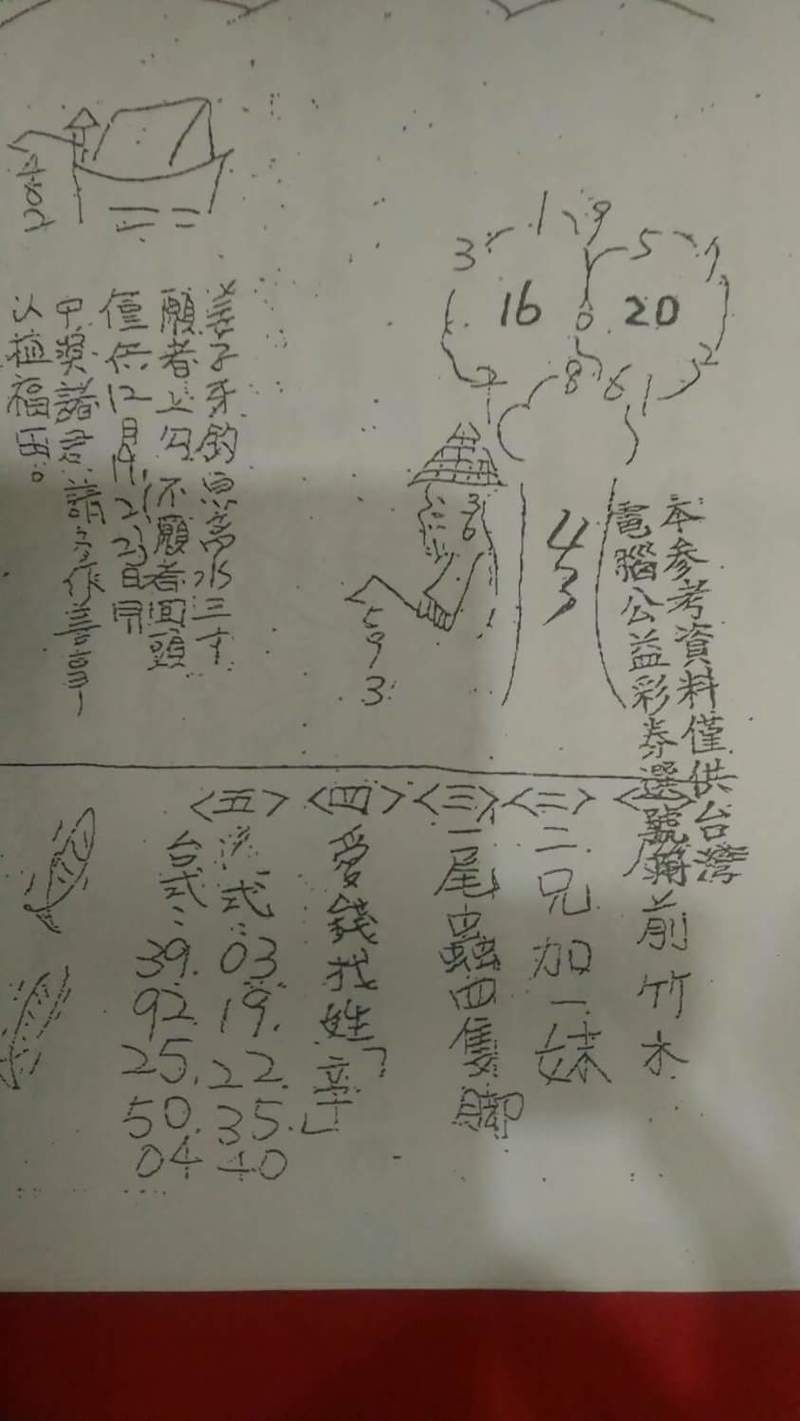 本参考資料僅供台灣
電腦公益彩券選號簿
3
1
9
5
1
16
20
0
2
7
8
6
1
43
36
593
462
姜子牙釣魚離水三寸
願者上勾不願者回頭
僅供12月19,21,23日開
甲獎諸君請多作善事
以植福田。
<一>
前竹木
<二>二兄加一妹
<三>一尾蟲四隻脚
<四>愛錢找姓「辛」
<五>港式:03.19.22.35.40
台式:39.92.25.50.04